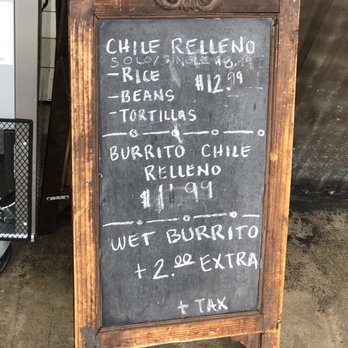 CHILE RELLENO
SOLO/SINGLE $8.99
-RICE $12.99
-BEANS
-TORTILLAS
BURRITO CHILE
RELLENO
$11.99
WET BURRITO
+2.00 EXTRA
+ TAX